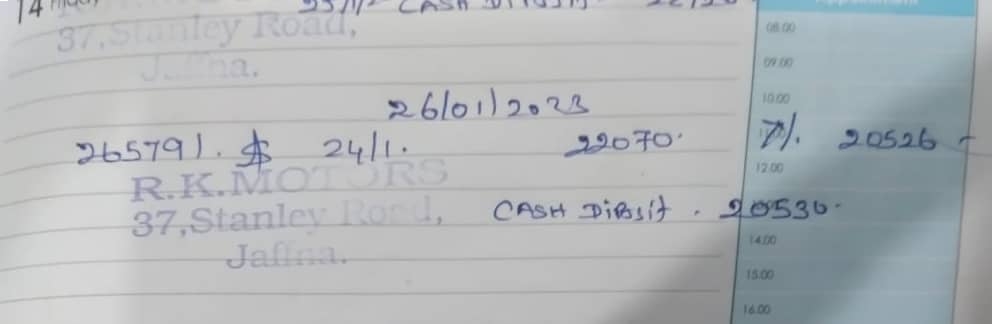 14 Friday
CASH
37,Stanley Road,
08.00
Jaffna.
09.00
26/01/2023
10.00
265791. 24/1. 22070. 7%. 20526
12.00
R.K.MOTORS
37,Stanley Road, CASH Diposit. 20530.
14.00
Jaffna.
15.00
16.00